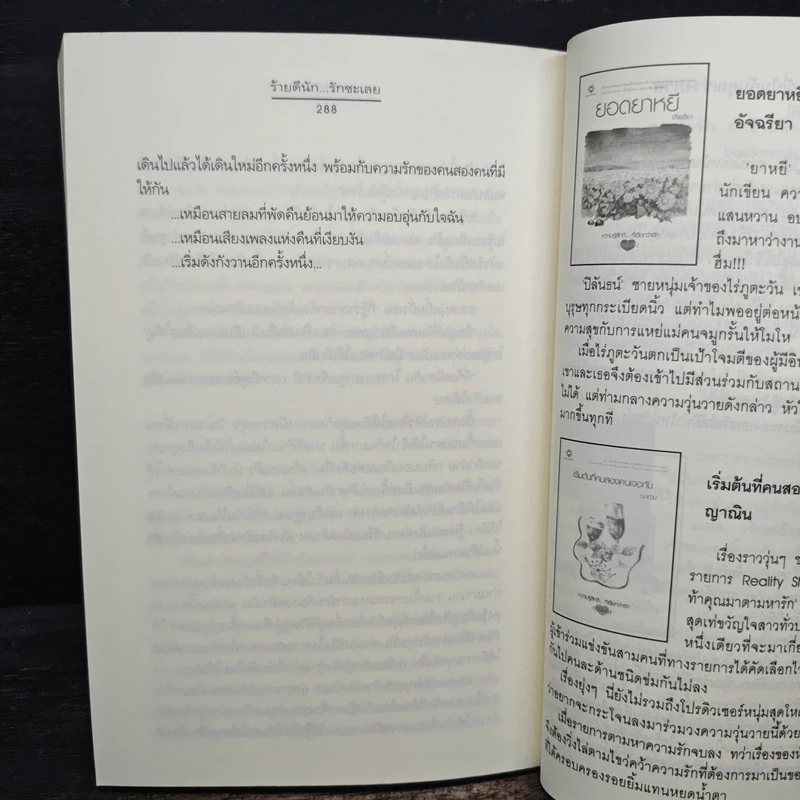 ร้ายตีนัก...รักซะเลย
288
เดินไปแล้วได้เดินใหม่อีกครั้งหนึ่ง พร้อมกับความรักของคนสองคนที่มี
ให้กัน
...เหมือนสายลมที่พัดคืนย้อนมาให้ความอบอุ่นกับใจฉัน
...เหมือนเสียงเพลงแห่งคืนที่เงียบงัน
...เริ่มดังกังวานอีกครั้งหนึ่ง...
ยอดยาหยี
อัจฉรียา
ความรู้สึกดี... ที่เรียกว่ารัก
ยอดยาหยี
อัจฉรียา
'ยาหยี'
นักเขียน
แสนหวาน
ถึงมาหาว่างาน
ฮึ่ม!!!
ปิลันธน์' ชายหนุ่มเจ้าของไร่ภูตะวัน
บุรุษทุกกระเบียดนิ้ว แต่ทำไมพออยู่ต่อหน้
ความสุขกับการแหย่แม่คนจมูกรั้นให้โมโห
เมื่อไร่ภูตะวันตกเป็นเป้าโจมตีของผู้มีอิท
เขาและเธอจึงต้องเข้าไปมีส่วนร่วมกับสถาน
ไม่ได้ แต่ท่ามกลางความวุ่นวายดังกล่าว หัวใ
มากขึ้นทุกที
เริ่มต้นที่คนสองคนเจอกัน
ญาณิน
ความรู้สึกดี... ที่เรียกว่ารัก
เริ่มต้นที่คนสอ
ญาณิน
เรื่องราววุ่นๆ
รายการ Reality Sh
ท้าคุณมาตามหารัก'
สุดเท่ขวัญใจสาวทั่ว
หนึ่งเดียวที่จะมาเกี่
ผู้เข้าร่วมแข่งขันสามคนที่ทางรายการได้คัดเลือก
กันไปคนละด้านชนิดข่มกันไม่ลง
เรื่องยุ่งๆ นี่ยังไม่รวมถึงโปรดิวเซอร์หนุ่มสุด
ว่าอยากจะกระโจนลงมาร่วมวงความวุ่นวายนี้ด้วย
เมื่อรายการตามหาความรักจบลง ทว่าเรื่องของ
จึงต้องวิ่งไล่ตามไขว่คว้าความรักที่ต้องการมาเป็นขอ
ได้ครอบครองรอยยิ้มแทนหยดน้ำตา